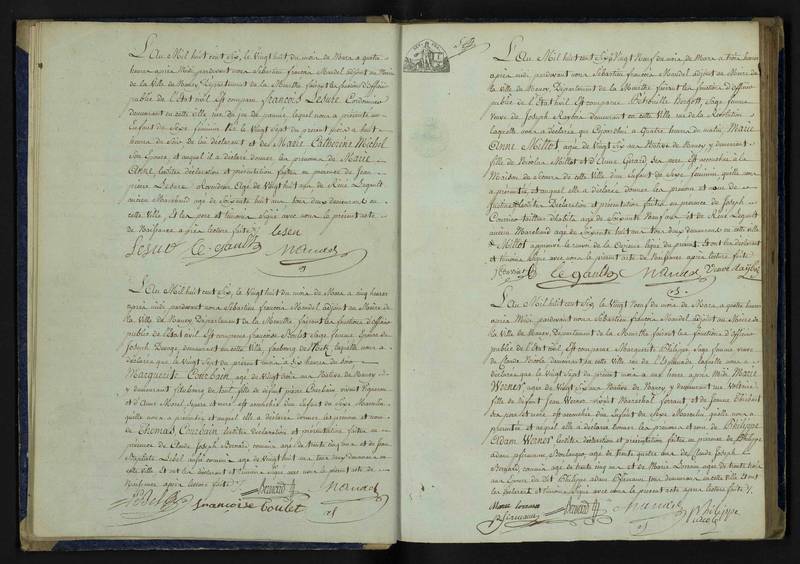 L'an Mil huit cent Six, le Vingt huit du mois de Mars a quatre
heures après Midi pardevant nous Sébastien françois Mandel adjoint au Maire
de la Ville de Nancy, Département de la Meurthe faisant les fonctions d'officier
public de l'Etat civil Est comparu françois Lesure Cordonnier
demeurant en cette ville rue du lequel nous a présenté un
Enfant du Sexe féminin Né le vingt Sept du présent mois à huit
heures du Soir de lui déclarant et de Marie Catherine Michel
Son Epouse, et auquel il a déclaré donner les prénoms de Marie
Anne, lesdites déclaration et présentation faites en présence de Jean
pierre Lesure agé de Vingt huit ans de René Legault
ancien Marchand agé de Soixante huit ans tous deux demeurant en
cette Ville, Et les pere et témoins Signé avec nous le présent acte
de Naissance après lecture faite
Lesure le gault Mandel
L'an Mil huit cent Six, le Vingt huit du mois de Mars a cinq heures
après midi pardevant nous Sébastien françois Mandel adjoint au Maire de
la Ville de Nancy, Département de la Meurthe faisant les fonctions d'officier
public de l'Etat civil Est comparue françoise Boulet Sage femme Epouse de
Joseph demeurant en cette ville, faubourg de laquelle nous a
déclaré que le Vingt Sept du présent mois à Six heures du Soir
Marguerite Courbain agée de Vingt trois ans Native de Nancy
y demeurant faubourg de fille de défunt pierre Courbain vivant Vigneron
et d'Anne Morel est accouchée d'un Enfant du Sexe Masculin
qu'elle nous a présenté, et auquel elle a déclaré donner les prénoms et nom
de Thomas Courbain lesdites déclaration et présentation faites en
présence de Claude Joseph Benard commis agé de trente cinq ans et de Jean
Baptiste commis agé de Vingt huit ans tous deux demeurant en
cette Ville Et ont les déclarant et témoins Signé avec nous le présent acte de
Naissance après lecture faite
françoise boulet Benard Mandel
L'an Mil huit cent Six, le Vingt Neuf du mois de Mars a heures
après midi pardevant nous Sébastien françois Mandel adjoint au Maire de
la Ville de Nancy, Département de la Meurthe faisant les fonctions d'officier
public de l'Etat civil Est comparue Sage femme
veuve de Joseph demeurant en cette Ville rue de la Révolution
laquelle nous a déclaré que Cejourd'hui à Quatre heures du matin, Marie
Anne Millot agée de Vingt Six ans Native de Nancy y demeurant
fille de Nicolas Millot et d'Anne Girard Ses pere est accouchée à la
Maison de Secours de cette Ville d'un Enfant du Sexe féminin, qu'elle nous
a présenté, et auquel elle a déclaré donner les prénom et nom de
Justine lesdites Déclaration et présentation faites en présence de Joseph
agé de Soixante Neuf ans et de René Legault
ancien Marchand agé de Soixante huit ans tous deux demeurant en cette ville
Millot approuvé le renvoi de la ligne du présent Et ont les déclarant
et témoins Signé avec nous le présent acte de Naissance après lecture faite
le gault Mandel
L'an Mil huit cent Six, le Vingt Neuf du mois de Mars a quatre heures
après Midi, pardevant nous Sébastien françois Mandel adjoint au Maire de
la Ville de Nancy, Département de la Meurthe faisant les fonctions d'officier
public de l'Etat civil Est comparue Marguerite Philippe, Sage femme veuve
de Claude Nicolas demeurant en cette Ville rue de laquelle nous a
déclaré que le Vingt Sept du présent mois à une heure après Midi Marie
Werner agée de Vingt Six ans Native de Nancy y demeurant rue
fille de défunt Jean Werner vivant Marechal ferrant et de Jeanne
est accouchée d'un Enfant du Sexe Masculin qu'elle nous a
présenté et auquel elle a déclaré donner les prénoms et nom de Philippe
Adam Werner lesdites déclaration et présentation faites en présence de Philippe
adam Boulanger, agé de trente quatre ans de Claude Joseph
Benard, commis agé de trente cinq ans et de Marie Lorrain agée de trente
ans Epouse du Dit Philippe Adam tous demeurant en cette Ville Et ont
les déclarant et témoins Signé avec nous le présent acte après lecture faite
Marie lorrain Benard Mandel M Philippe